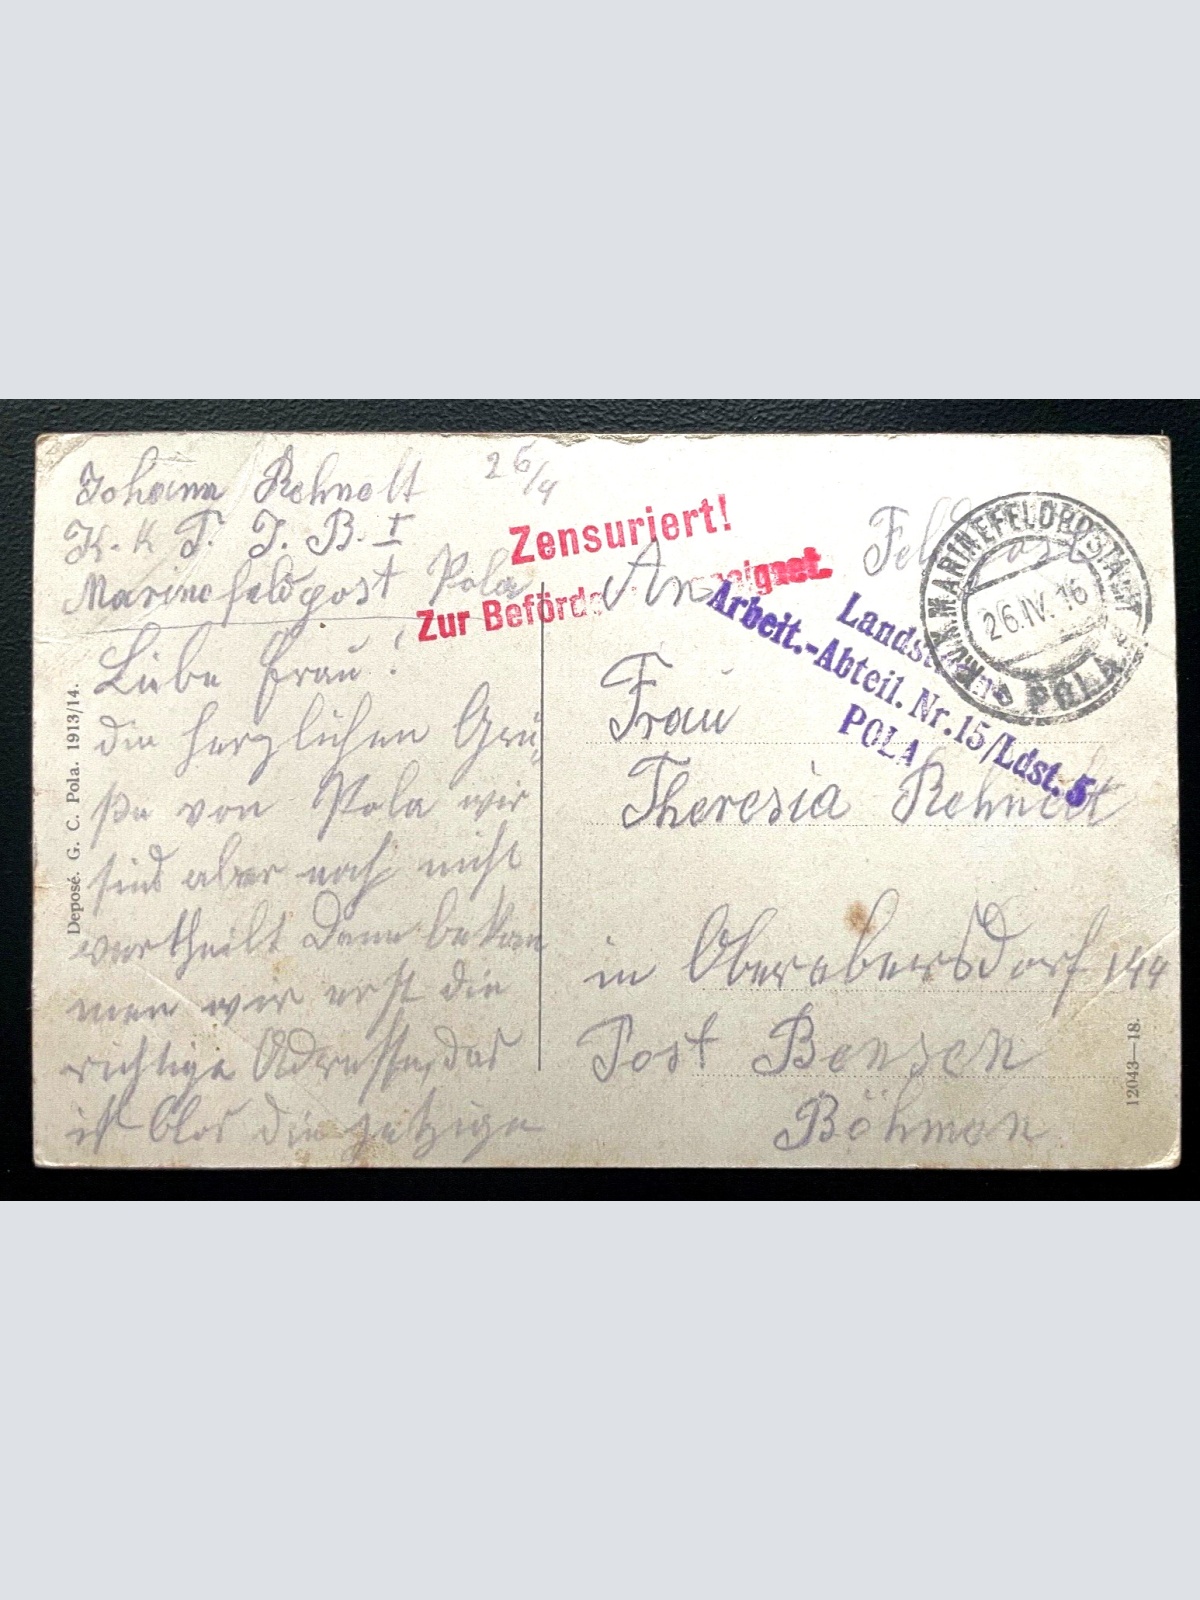 Johann Rehnelt 26/4
K. k. T. J. B. I
Marinefeldpost Pola
Liebe Frau!
die herzlichen Grü-
ße von Pola wir
sind aber noch nicht
vertheilt Dann bekom
men wir erst die
richtige Adresse, das
ist blos die jetzige
Deposé. G. C. Pola. 1913/14.
Zensuriert!
Zur Beförde geeignet.
Feldpost
K.U.K. MARINEFELDPOSTAMT
26.IV.16
POLA
Landsturm
Arbeit.-Abteil. Nr. 15/Ldst. 5
POLA
An
Frau
Theresia Rehnelt
in Oberebersdorf 144
Post Bensen
Böhmen
12043—18.